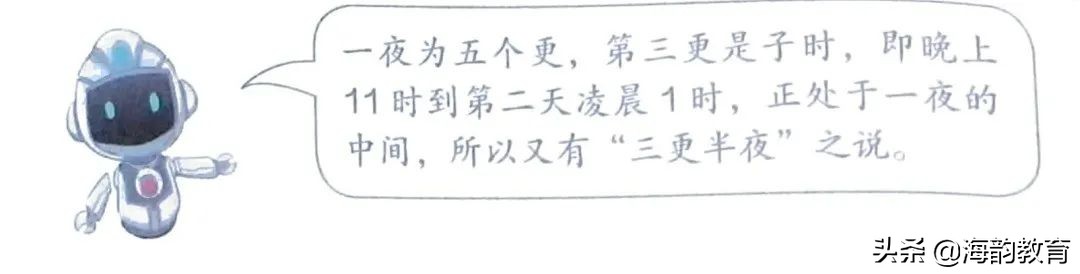 一夜为五个更，第三更是子时，即晚上
11时到第二天凌晨1时，正处于一夜的
中间，所以又有“三更半夜”之说。
头条@海韵教育